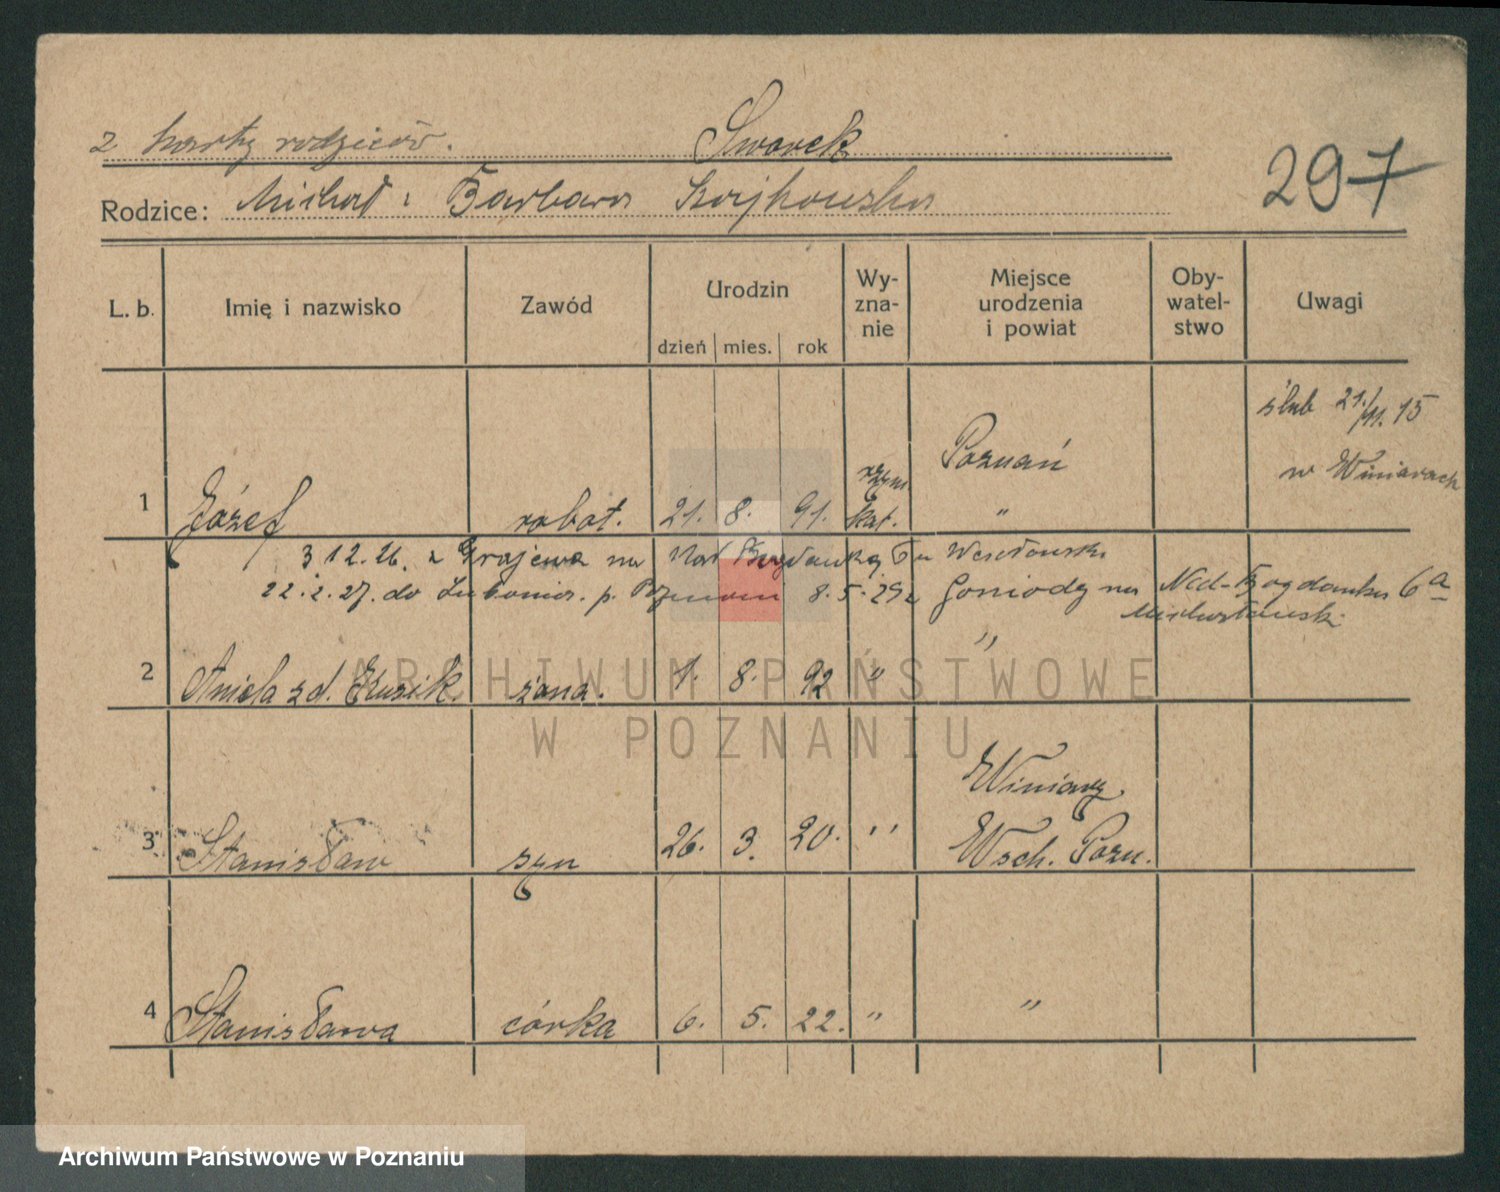 z karty rodziców. Sworek
297
Rodzice: Michał i Barbara
L. b. Imię i nazwisko Zawód Urodzin dzień mies. rok Wy-zna-nie Miejsce urodzenia i powiat Oby-watel-stwo Uwagi
ślub 21./11. 15
w Winiarach
1 Józef robot. 21. 8. 91. rzym kat. Poznań "
3 12. 26. z Grajewa na Nad Bogdanką
22. 2. 27. do p. 8. 5. 29 z na Nad-Bogdanką 6a
2 Aniela z d. żona. 1. 8. 92 " "
ARCHIWUM PAŃSTWOWE
W POZNANIU
3 Stanisław syn 26. 3. 20. " Winiary
Wsch. Pozn.
4 Stanisława córka 6. 5. 22. " "
Archiwum Państwowe w Poznaniu